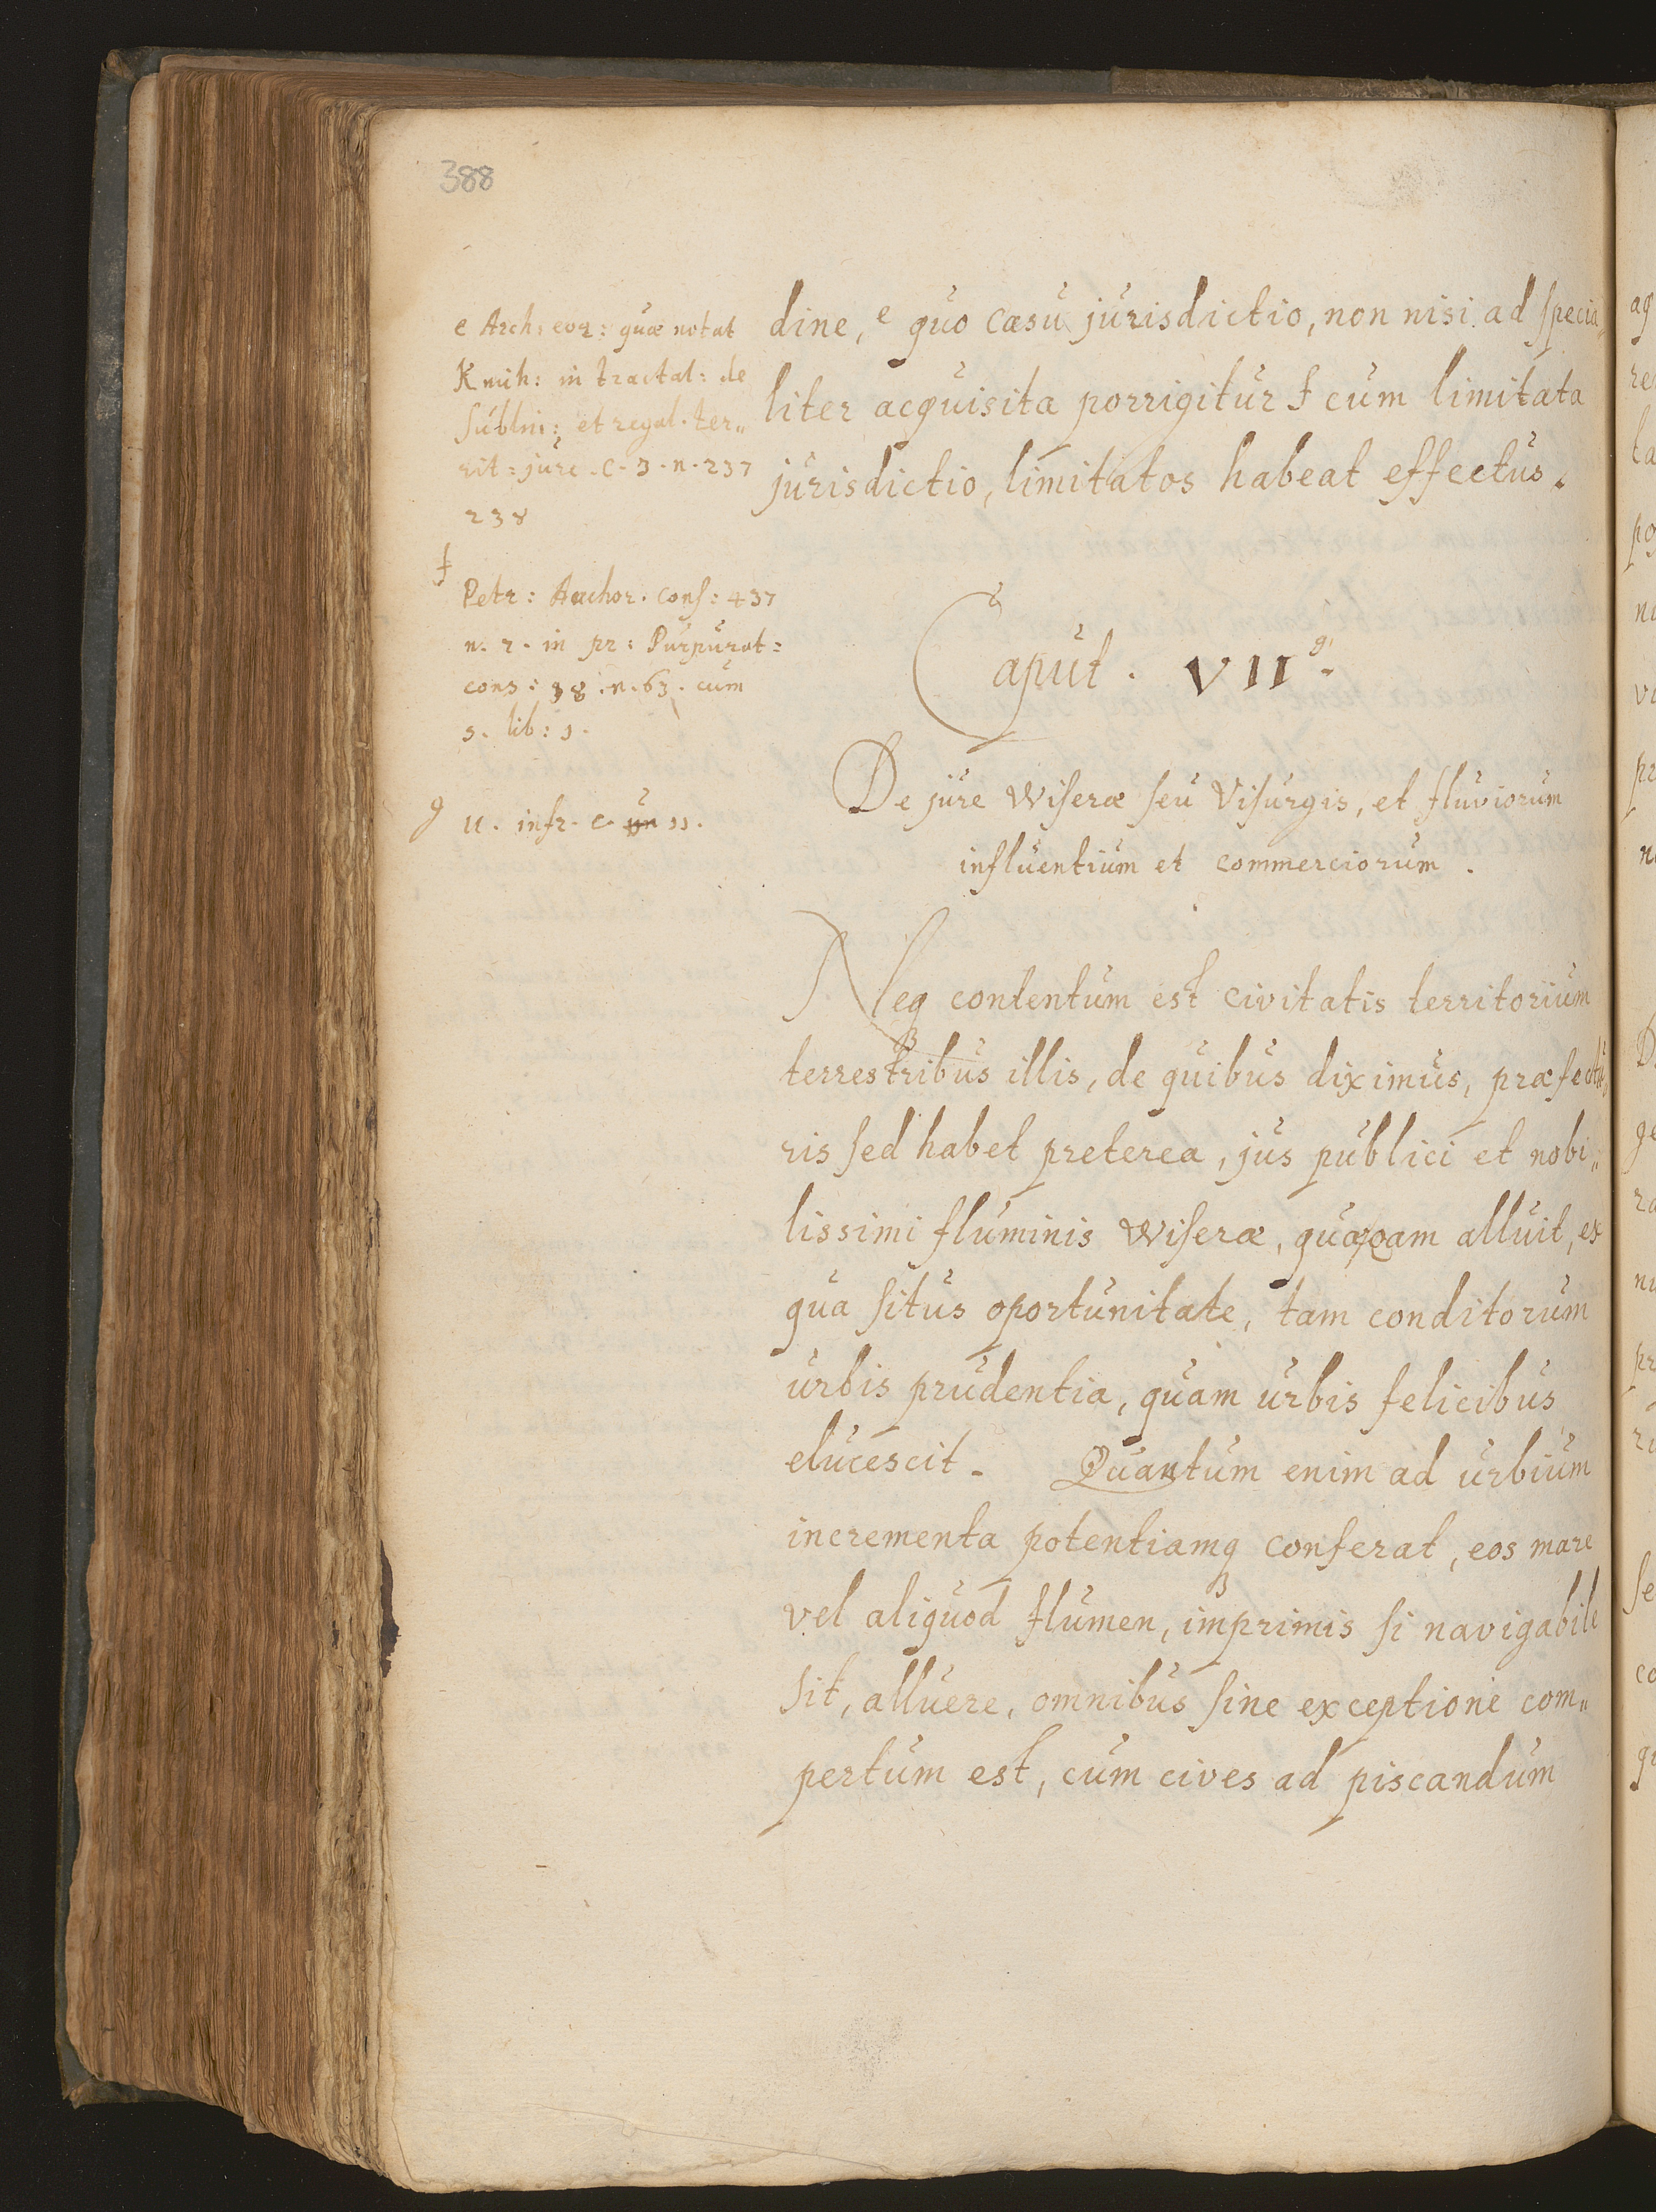 388
e Arch: eoz: quæ notat
Knich: in tractat: de
Sublni: et regal. ter„
rit: jure. c. 3. n. 237
238
f
Petr: Anchor. cons: 437
n. 2. in pr: Purpurat:
cons: 38. n. 63. cum
s. lib: 1.
g u. infr. c. un 11.
dine, e quo casu jurisdictio, non nisi ad specia„
liter acquisita porrigitur f cum limitata
jurisdictio, limitatos habeat effectus.
Caput. VII g.
De jure Wiseræ seu Visurgis, et fluviorum
influentium et commerciorum.
Neq contentum est civitatis territorium
terrestribus illis, de quibus diximus, præfectu„
ris sed habet preterea, jus publici et nobi„
lissimi fluminis Wiseræ, alluit, ex
qua situs oportunitate, tam conditorum
urbis prudentia, quam urbis felicibus
elucescit. Quantum enim ad urbium
incrementa potentiamq conferat, eos mare
vel aliquod flumen, imprimis si navigabile
sit, alluere, omnibus sine exceptione com„
pertum est, cum cives ad piscandum